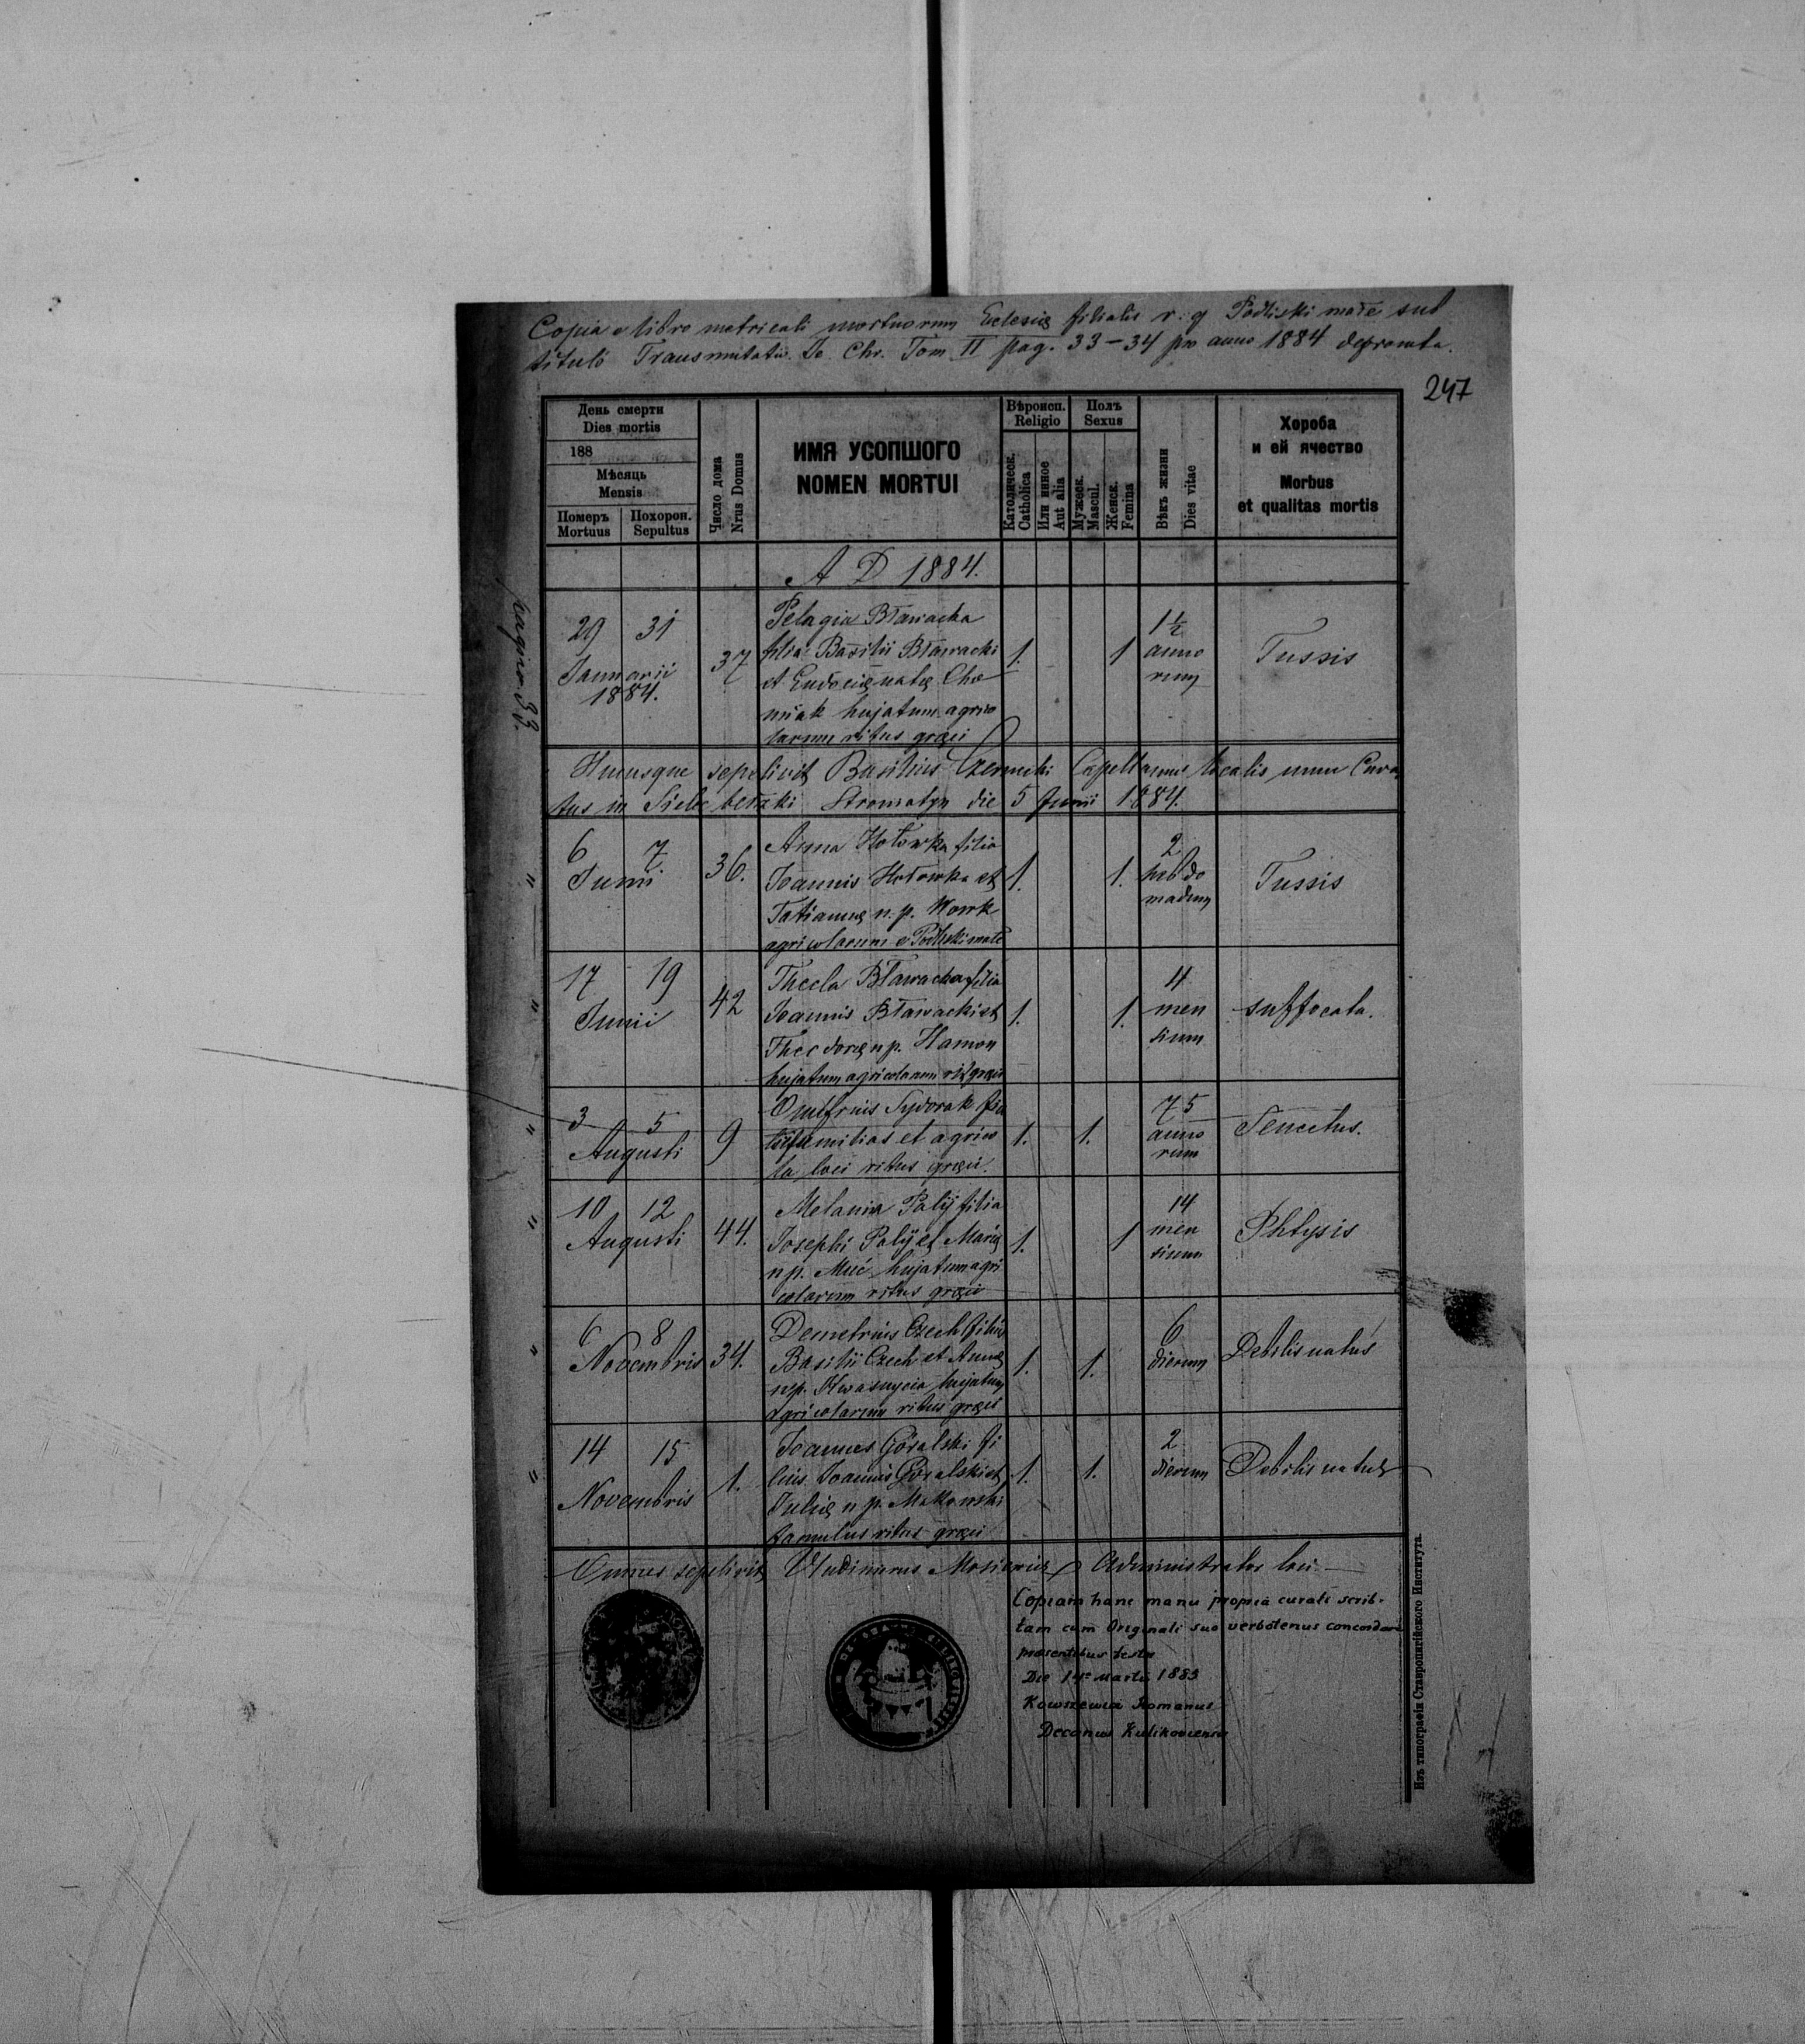 Copia e libro metricali mortuorum Eclesię filialis r. g. Podliski małe sub
titulo Transmutatio. De Chr. Tom II pag. 33-34 pro anno 1884 deprompta.
247
День смерти
Dies mortis
188
Мѣсяць
Mensis
Померъ
Mortuus
Похорон.
Sepultus
Число дома
Nrus Domus
ИМЯ УСОПШОГО
NOMEN MORTUI
Вѣроисп.
Religio
Католическ.
Catholica
Или инное
Aut alia
Полъ
Sexus
Мужеск.
Mascul.
Женск.
Femina
Вѣкъ жизни
Dies vitae
Хороба
и ей ячество
Morbus
et qualitas mortis
A D 1884.
pagina 33.
29 31
Januarii
1884.
37
Pelagia Bławacka
filia Basilii Bławacki
et Eudocię natę Cho
miak hujatum agrico
larum ritus gręci
1. 1
1½
anno
rum
Tussis
Hucusque sepelivit Basilius Czernecki Capellanus localis nunc Cura
tus in Sielec bełzki Stromatyn die 5 Junii 1884.
" 6 7
Junii
36.
Anna Hołowka filia
Joannis Hołowka et
Tatiannę n. p. Wowk
agricolarum e Podliski małe
1. 1.
2
hebdo
madum
Tussis
" 17 19
Junii
42
Thecla Bławacka filia
Joannis Bławacki et
Theodorę n p. Hamon
hujatum agricolarum rit gręci
1. 1.
4
men
sium
suffocata.
" 3 5
Augusti
9
Onufrius Sydorak
familias et agrico
la loci ritus gręci.
1. 1.
75
anno
rum
Senectus.
" 10 12
Augusti
44.
Melania Palij filia
Josephi Palij et Marię
n p. Muć hujatum agri
colarum ritus gręci
1. 1
14
men
sium
Phtysis
" 6 8
Novembris
34.
Demetrius Czech filius
Basilii Czech et Annę
n p. Kwasnycia hujatum
agricolarum ritus gręci
1. 1.
6
dierum
Debilis natus
" 14 15
Novembris
1.
Joannes Góralski fi
lius Joannis Góralski et
Julię n p. Makowski
famulus ritus gręci
1. 1.
2
dierum
Debilis natus
Omnes sepelivit Vladimirus Administrator loci
Copiam hanc manu propria curate scrib-
tam cum Originali suo verbotenus concordare
praesentibus testor
Die 14º Martii 1885
Romanus
Decanus Kulikoviensis
Изъ типографіи Ставропигійского Института.